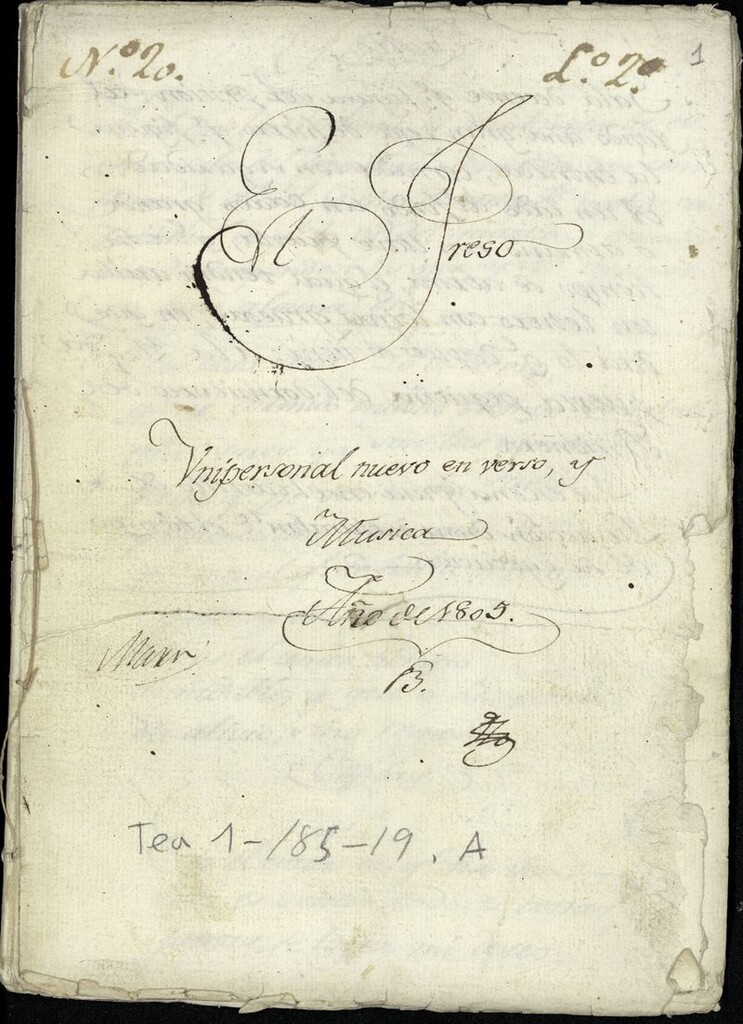 Nº 20.
Lº 2º
1
El Preso
Vnipersonal nuevo en verso, y
Musica
Año de 1805.
B.
Tea 1-185-19, A